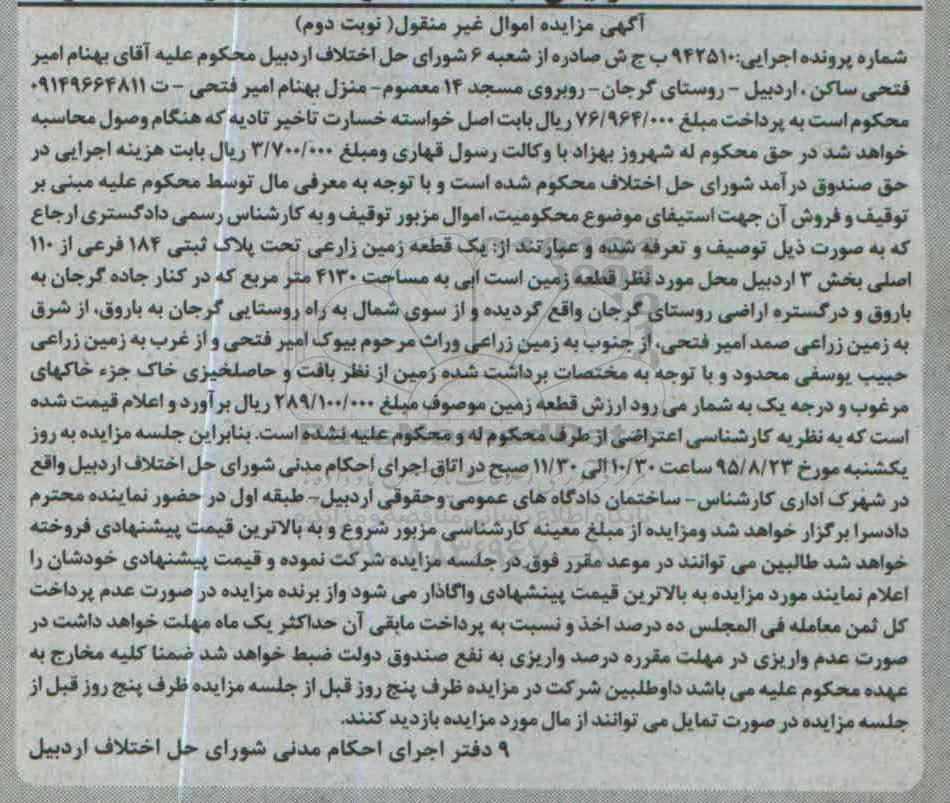 آگهی مزایده اموال غیر منقول( نوبت دوم)
شماره پرونده اجرایی:۹۴۲۵۱۰ ب ج ش صادره از شعبه ۶ شورای حل اختلاف اردبیل محکوم علیه آقای بهنام امیر
فتحی ساکن ، اردبیل - روستای گرجان- روبروی مسجد ۱۴ معصوم- منزل بهنام امیر فتحی - ت ۰۹۱۴۹۶۶۴۸۱۱
محکوم است به پرداخت مبلغ ۷۶/۹۶۴/۰۰۰ ریال بابت اصل خواسته خسارت تاخیر تادیه که هنگام وصول محاسبه
خواهد شد در حق محکوم له شهروز بهزاد با وکالت رسول قهاری ومبلغ ۳/۷۰۰/۰۰۰ ریال بابت هزینه اجرایی در
حق صندوق درآمد شورای حل اختلاف محکوم شده است و با توجه به معرفی مال توسط محکوم علیه مبنی بر
توقیف و فروش آن جهت استیفای موضوع محکومیت، اموال مزبور توقیف و به کارشناس رسمی دادگستری ارجاع
که به صورت ذیل توصیف و تعرفه شده و عبارتند از: یک قطعه زمین زارعی تحت پلاک ثبتی ۱۸۴ فرعی از ۱۱۰
اصلی بخش ۳ اردبیل محل مورد نظر قطعه زمین است ابی به مساحت ۴۱۳۰ متر مربع که در کنار جاده گرجان به
باروق و درگستره اراضی روستای گرجان واقع گردیده و از سوی شمال به راه روستایی گرجان به باروق، از شرق
به زمین زراعی صمد امیر فتحی، از جنوب به زمین زراعی وراث مرحوم بیوک امیر فتحی و از غرب به زمین زراعی
حبیب یوسفی محدود و با توجه به مختصات برداشت شده زمین از نظر بافت و حاصلخیزی خاک جزء خاکهای
مرغوب و درجه یک به شمار می رود ارزش قطعه زمین موصوف مبلغ ۲۸۹/۱۰۰/۰۰۰ ریال برآورد و اعلام قیمت شده
است که به نظریه کارشناسی اعتراضی از طرف محکوم له و محکوم علیه نشده است. بنابراین جلسه مزایده به روز
یکشنبه مورخ ۹۵/۸/۲۳ ساعت ۱۰/۳۰ الی ۱۱/۳۰ صبح در اتاق اجرای احکام مدنی شورای حل اختلاف اردبیل واقع
در شهرک اداری کارشناس- ساختمان دادگاه های عمومی وحقوقی اردبیل- طبقه اول در حضور نماینده محترم
دادسرا برگزار خواهد شد ومزایده از مبلغ معینه کارشناسی مزبور شروع و به بالاترین قیمت پیشنهادی فروخته
خواهد شد طالبین می توانند در موعد مقرر فوق در جلسه مزایده شرکت نموده و قیمت پیشنهادی خودشان را
اعلام نمایند مورد مزایده به بالاترین قیمت پیشنهادی واگاذار می شود واز برنده مزایده در صورت عدم پرداخت
کل ثمن معامله فی المجلس ده درصد اخذ و نسبت به پرداخت مابقی آن حداکثر یک ماه مهلت خواهد داشت در
صورت عدم واریزی در مهلت مقرره درصد واریزی به نفع صندوق دولت ضبط خواهد شد ضمنا کلیه مخارج به
عهده محکوم علیه می باشد داوطلبین شرکت در مزایده ظرف پنج روز قبل از جلسه مزایده ظرف پنج روز قبل از
جلسه مزایده در صورت تمایل می توانند از مال مورد مزایده بازدید کنند.
۹ دفتر اجرای احکام مدنی شورای حل اختلاف اردبیل